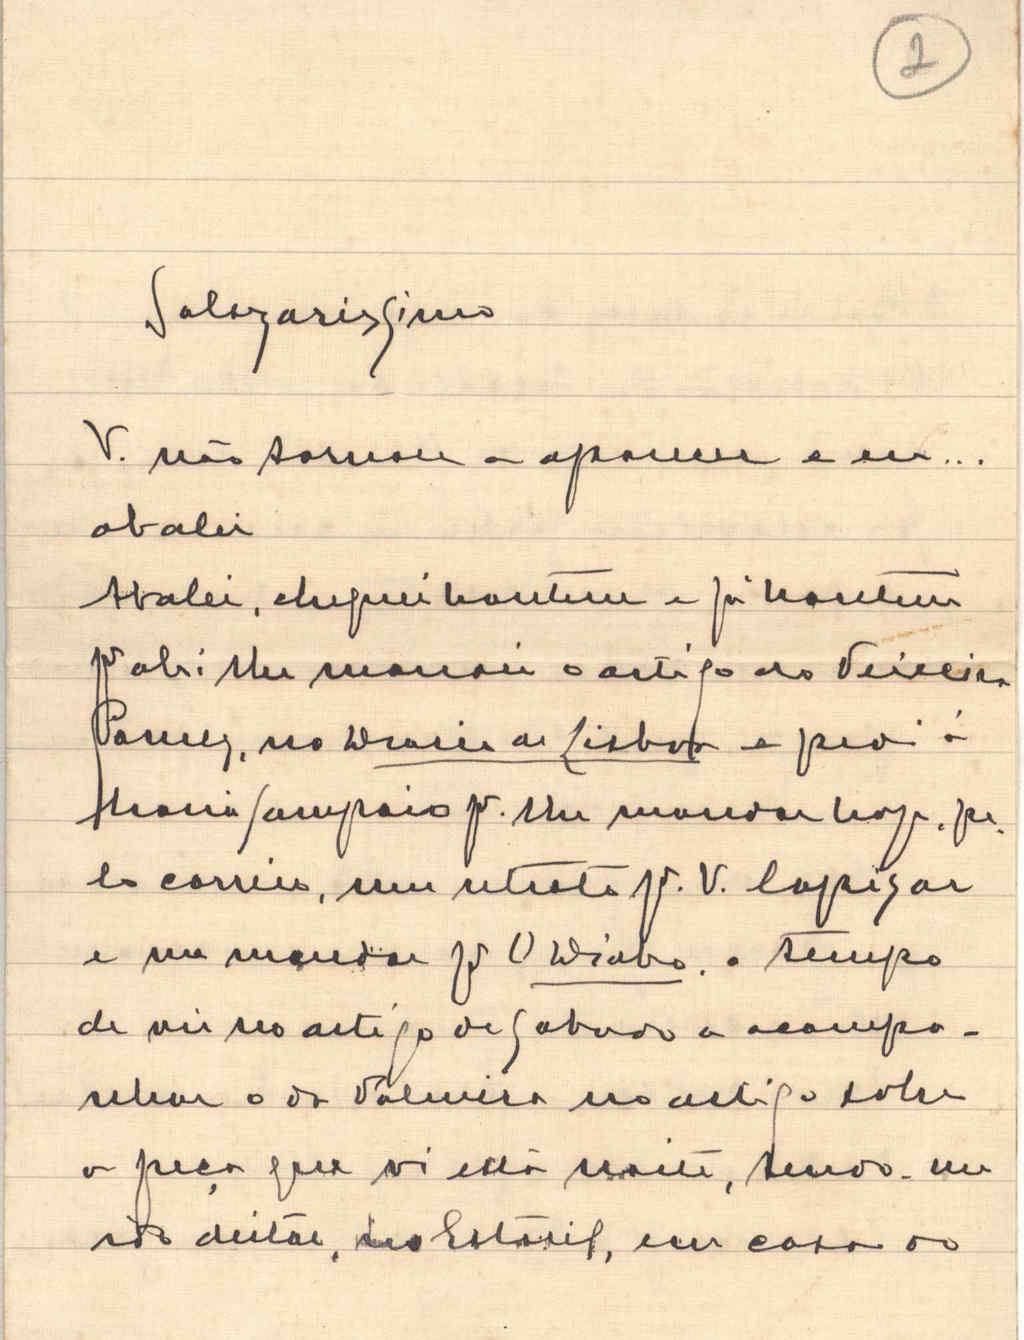 2
Salazarissimo
V. não tornou a aparecer e eu...
abalei
Abalei, cheguei hontem e já hontem
pª ahi lhe mandei o artigo do Teixeira
Gomes, no Diario de Lisboa e pedi á
Maria Sampaio pª. lhe mandar hoje, pe-
lo correio, um retrato pª. V. lapizar
e me mandar pª O Diabo, a tempo
de vir no artigo de Sabado a acompa-
nhar o da Palmira no artigo sobre
a peça que vi esta noite, tendo-me
ido deitar, no Estoril, em casa do